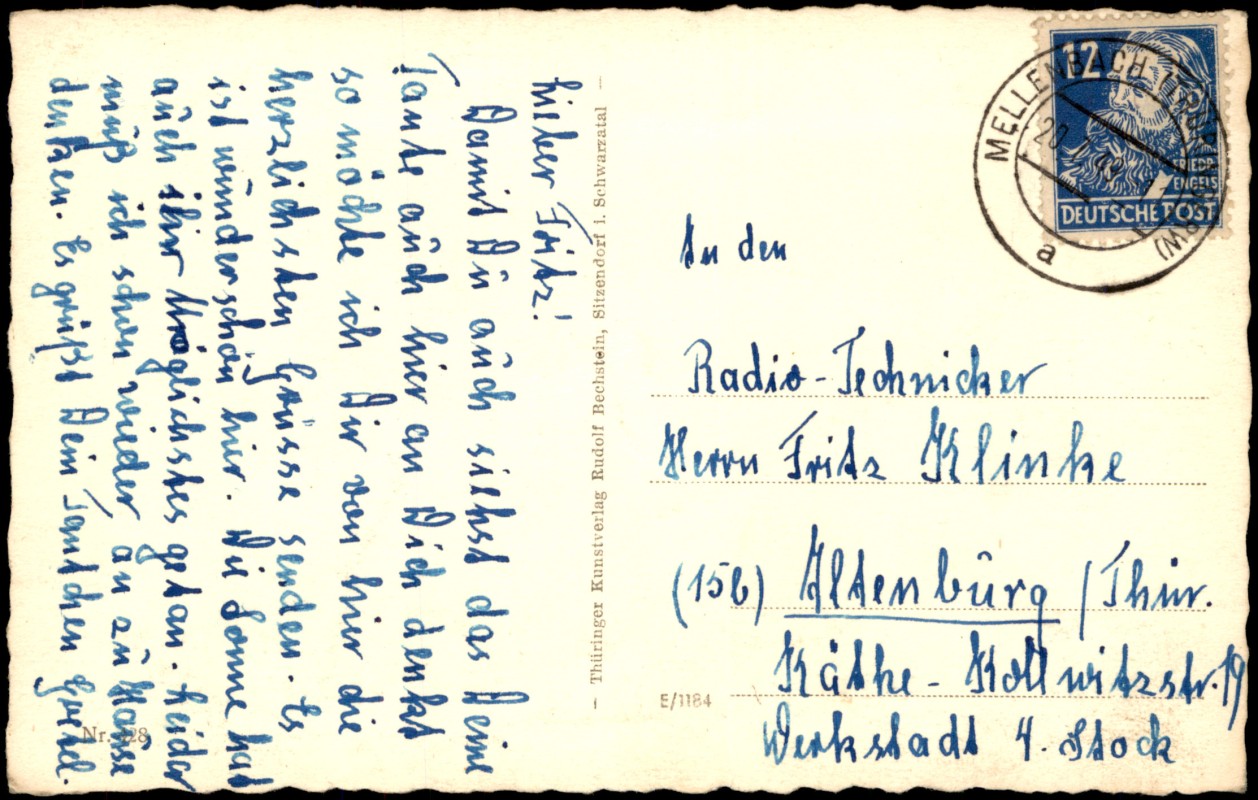 Lieber Fritz!
Damit Du auch siehst das Deine
Tante auch hier an Dich denkt
so möchte ich Dir von hier die
herzlichsten Grüsse senden. Es
ist wunderschön hier. Die Sonne hat
auch ihr Möglichstes getan. Leider
muß ich schon wieder an zu Hause
denken. Es grüßt Dein Tantchen Gretel.
Nr. 328
– Thüringer Kunstverlag Rudolf Bechstein, Sitzendorf i. Schwarzatal –
E/1184
12
FRIEDR.
ENGELS
DEUTSCHE POST
MELLENBACH
a
An den
Radio-Technicker
Herrn Fritz Klinke
(15b) Altenburg / Thür.
Käthe-Kollwitzstr. 19
Werkstadt 4. Stock